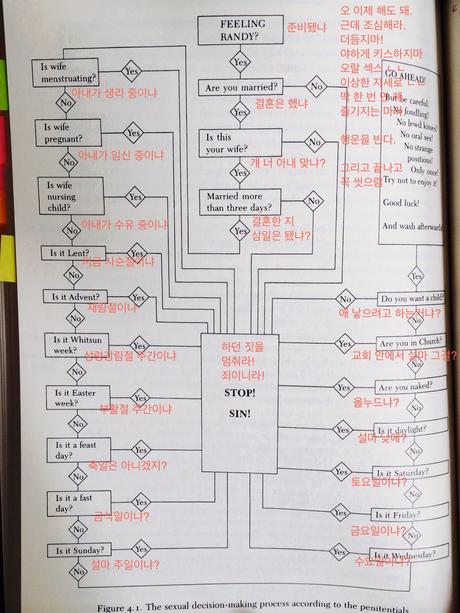 FEELING
RANDY?
준비됐냐
Yes
Are you married?
No
결혼은 했냐
Yes
Is this
your wife?
No
걔 너 아내 맞냐?
Yes
Married more
than three days?
No
결혼한 지
삼일은 됐냐?
Yes
Is wife
menstruating?
Yes
아내가 생리 중이냐
No
Is wife
pregnant?
Yes
아내가 임신 중이냐
No
Is wife
nursing
child?
Yes
아내가 수유 중이냐
No
Is it Lent?
Yes
지금 사순절이냐
No
Is it Advent?
Yes
재림절이냐
No
Is it Whitsun
week?
Yes
성령강림절 주간이냐
No
Is it Easter
week?
Yes
부활절 주간이냐
No
Is it a feast
day?
Yes
축일은 아니겠지?
No
Is it a fast
day?
Yes
금식일이냐?
No
Is it Sunday?
Yes
설마 주일이냐?
No
Is it Wednesday?
Yes
수요일이냐?
No
Is it Friday?
Yes
금요일이냐?
No
Is it Saturday?
Yes
토요일이냐?
No
Is it daylight?
Yes
설마 낮에?
No
Are you naked?
Yes
올누드냐?
No
Are you in Church?
Yes
교회 안에서 설마 그걸?
No
Do you want a child?
No
애 낳으려고 하는거냐?
Yes
GO AHEAD!
But be careful:
No fondling!
No lewd kisses!
No oral sex!
No strange
positions!
Only once!
Try not to enjoy it!
Good luck!
And wash afterwards
오 이제 해도 돼.
근데 조심해라.
더듬지마!
야하게 키스하지마
오랄 섹스 ㄴㄴ
이상한 자세로 ㄴㄴ
딱 한 번 만 돼
즐기지는 마라
행운을 빈다.
그리고 끝나고
꼭 씻으렴
하던 짓을
멈춰라!
죄이니라!
STOP!
SIN!
Figure 4.1. The sexual decision-making process according to the penitentials